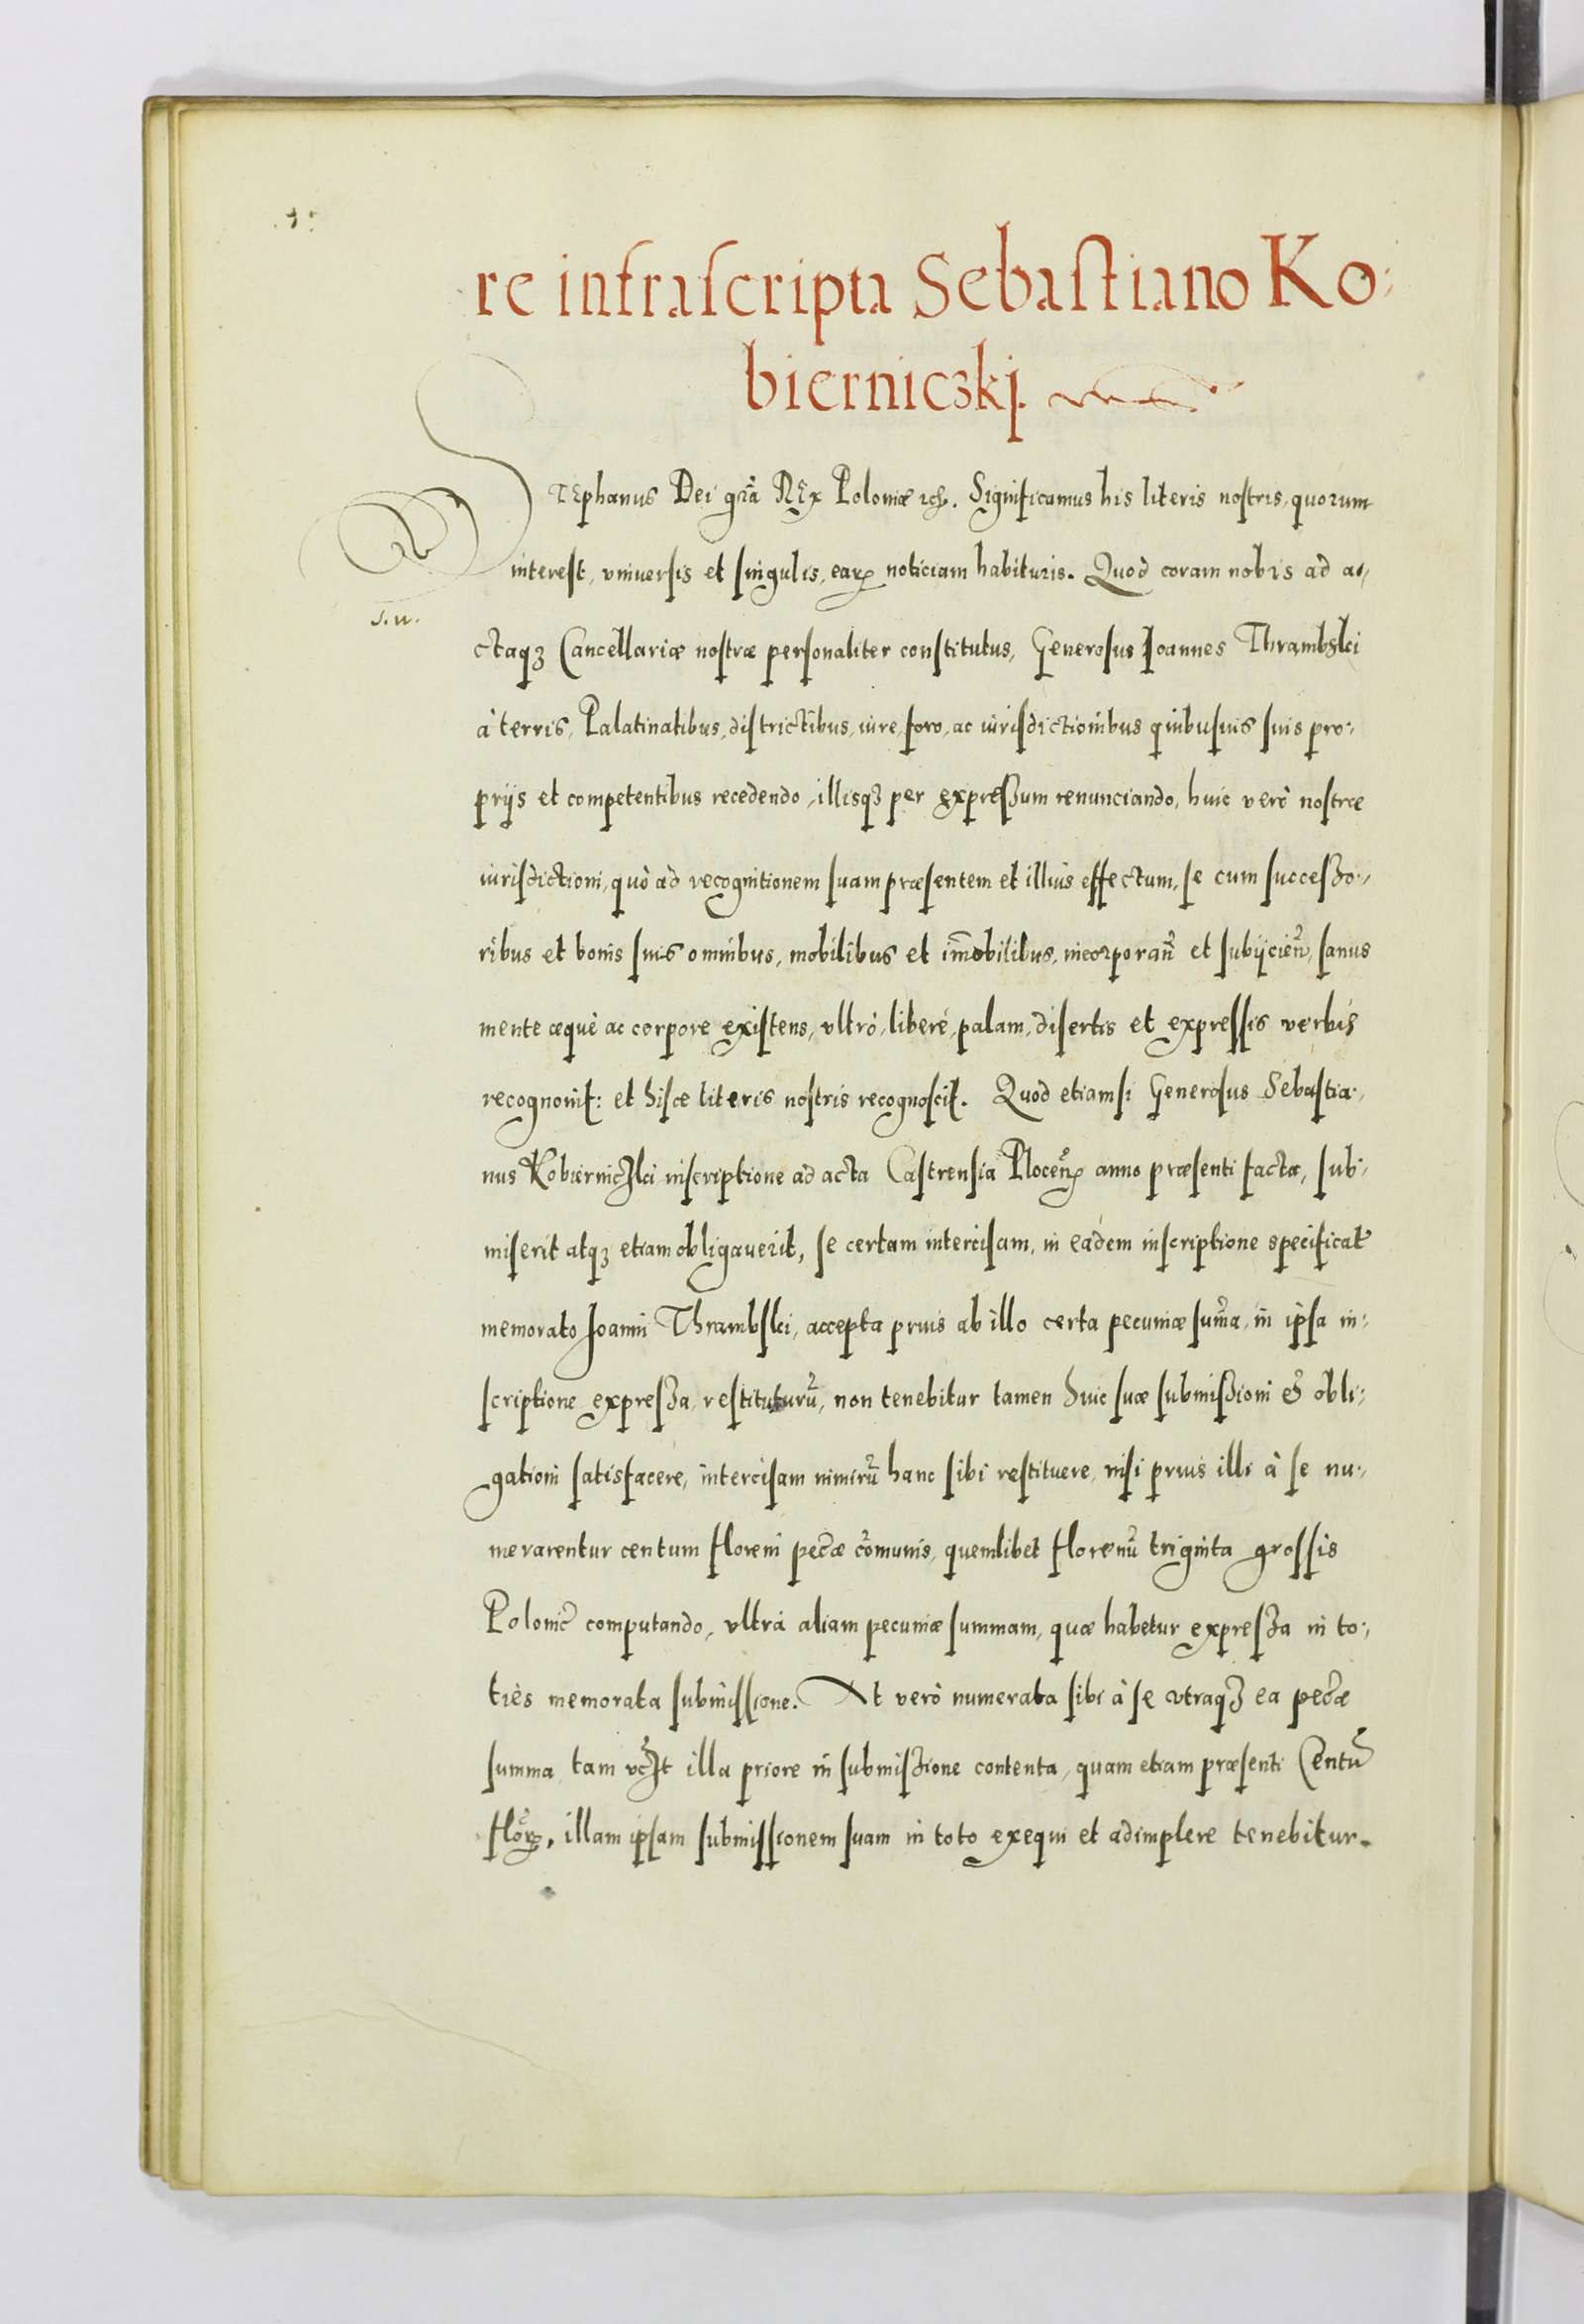 re infrascripta Sebastiano Ko-
bierniczkj.
STEphanus Dei gr̃a REx Poloniæ etc. Significamus his literis nostris, quorum
interest, vniuersis et singulis, earꝝ noticiam habituris. Quod coram nobis ad a-
ctaqꝫ Cancellariæ nostræ personaliter constitutus, Generosus Ioannes Thrambski
à terris, Palatinatibus, districtibus, iure, foro, ac iurisdictionibus quibusuis suis pro-
prijs et competentibus recedendo, illisqꝫ per expreßum renunciando, huic verò nostræ
iurisdictioni, quò ad recognitionem suam præsentem et illius effectum, se cum succeßo-
ribus et bonis suis omnibus, mobilibus et im̃obilibus, incorporañ et subijcieñ, sanus
mente æquè ac corpore existens, vltrò, liberè, palam, disertis et expressis verbis
recognouit: et hisce literis nostris recognoscit. Quod etiamsi Generosus Sebastia-
nus Kobierniczki inscriptione ad acta Castrensia Plocen̄ꝝ anno præsenti facta, sub-
miserit atqꝫ etiam obligauerit, se certam intercisam, in eadem inscriptione specificat̃
memorato Joanni Thrambski, accepta prius ab illo certa pecuniæ sum̃a, in ipsa in-
scriptione expreßa, restituturũ, non tenebitur tamen huic suæ submißioni & obli-
gationi satisfacere, intercisam nimirũ hanc sibi restituere, nisi prius illi à se nu-
merarentur centum floreni pecũæ com̃unis, quemlibet florenũ triginta grossis
Polonic̃ computando, vltrà aliam pecuniæ summam, quæ habetur expreßa in to-
tiès memorata submissione. At verò numerata sibi à se vtraqꝫ ea pecũæ
summa, tam vcꝫt illa priore in submißione contenta, quam etiam præsenti Centũ
flor̃ꝝ, illam ipsam submissionem suam in toto exequi et adimplere tenebitur.